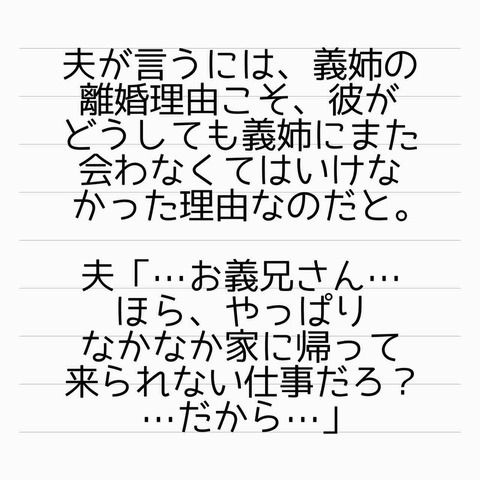 夫が言うには、義姉の
離婚理由こそ、彼が
どうしても義姉にまた
会わなくてはいけな
かった理由なのだと。
夫「…お義兄さん…
ほら、やっぱり
なかなか家に帰って
来られない仕事だろ？
…だから…」